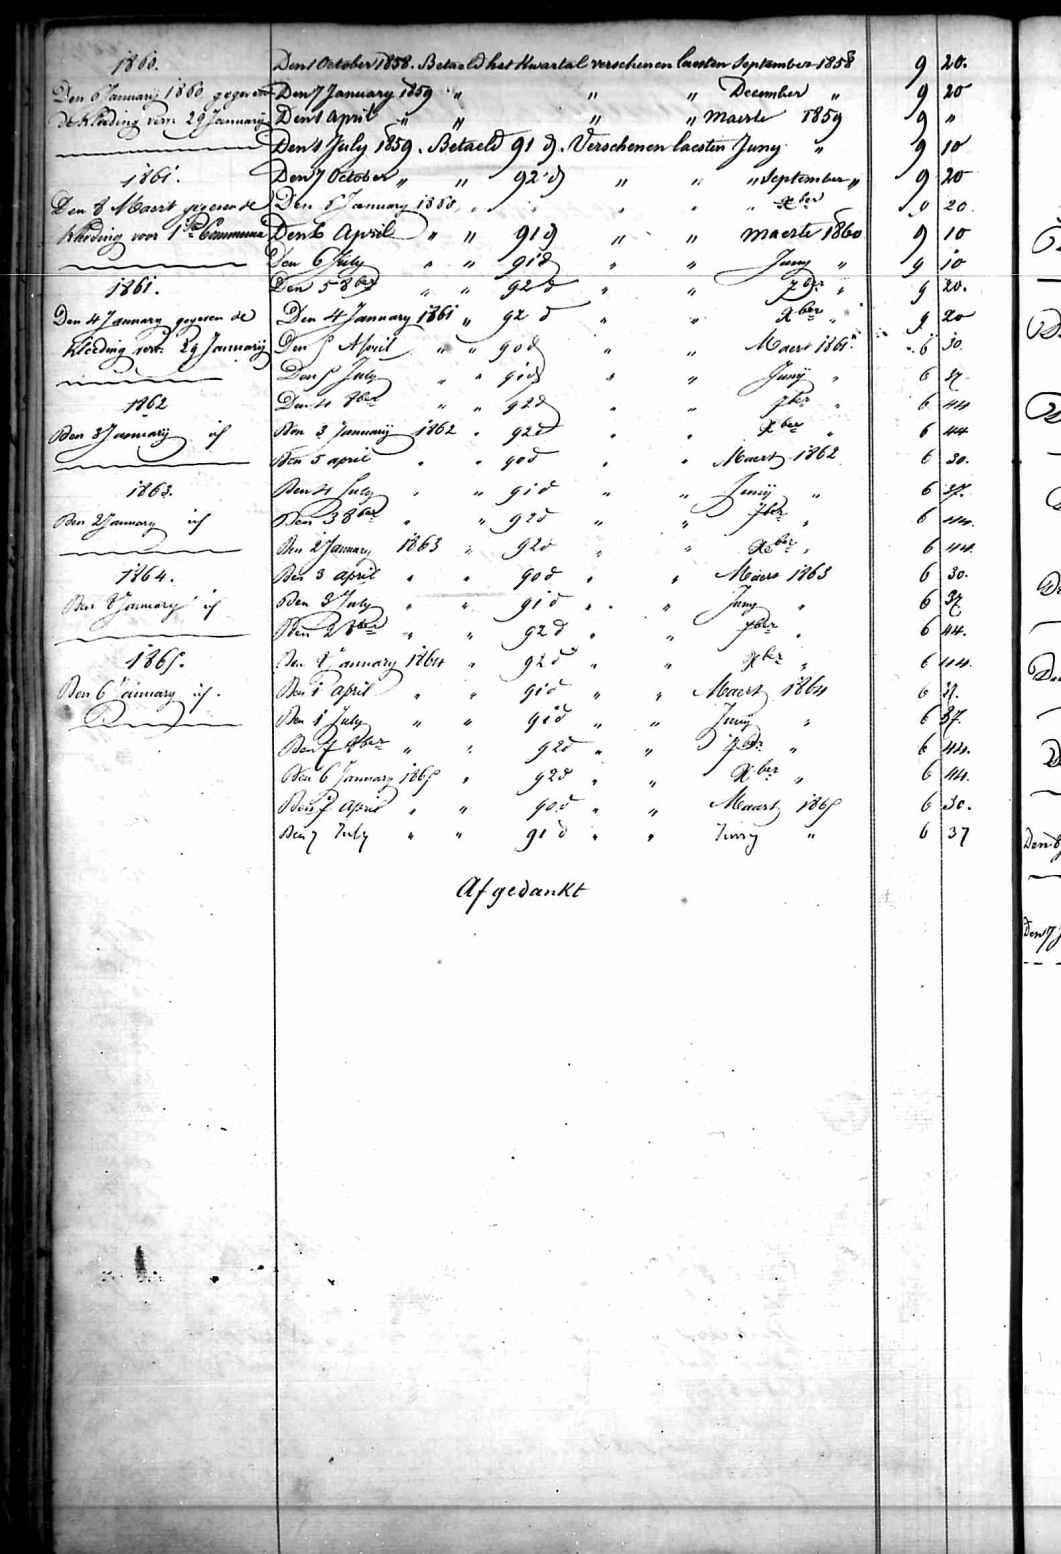 1860.
Den 6 January 1860 gegeven
de kleeding voor 29 January
1861.
Den 8 Maert gegeven de
kleeding voor 1ste Communie
1861.
Den 4 January gegeven de
kleeding voor 29 January
1862
Den 3 Januarij id
1863.
Den 2 January id
1864.
Den 8 January id
1865.
Den 6 January id.
Den 1 October 1858. Betaeld het Kwartal verschenen laesten September 1858 9 20.
Den 7 January 1859 " " " December " 9 20
Den 1 April " " " " Maerte 1859 9 "
Den 4 July 1859. Betaeld 91 d. Verschenen laesten Juny " 9 10
Den 7 October " " 92 d " " " September " 9 20
Den 6 January 1860 " " " " Xber 9 20
Den 6 April " " 91 d " " maerte 1860 9 10
Den 6 July " " 91 d " " Juny " 9 10
Den 5 8ber " " 92 d " " 7ber " 9 20.
Den 4 January 1861 " 92 d " " Xber " 9 20
Den 5 April " " 90 d " " Maert 1861 6 30.
Den 5 July " " 91 d " " Junij " 6 37.
Den 4 8ber " " 92 d " " 7ber " 6 44
Den 3 Januarij 1862 " 92 d " " Xber " 6 44
Den 5 april " " 90 d " " Maert 1862 6 30.
Den 4 July " " 91 d " " Junij " 6 37.
Den 3 8ber " " 92 d " " 7ber " 6 44.
Den 2 January 1863 " 92 d " " Xber " 6 44.
Den 3 april " " 90 d " " Maert 1863 6 30.
Den 3 July " " 91 d " " Juny " 6 37
Den 2 8ber " " 92 d " " 7ber " 6 44.
Den 8 January 1864 " 92 d " " Xber " 6 44.
Den 1 april " " 91 d " " Maert 1864 6 37.
Den 1 July " " 91 d " " Junij " 6 37.
Den 7 8ber " " 92 d " " 7ber " 6 44.
Den 6 January 1865 " 92 d " " Xber " 6 44.
Den 7 April " " 90 d " " Maart 1865 6 30.
Den 7 July " " 91 d " " Juny " 6 37
Afgedankt